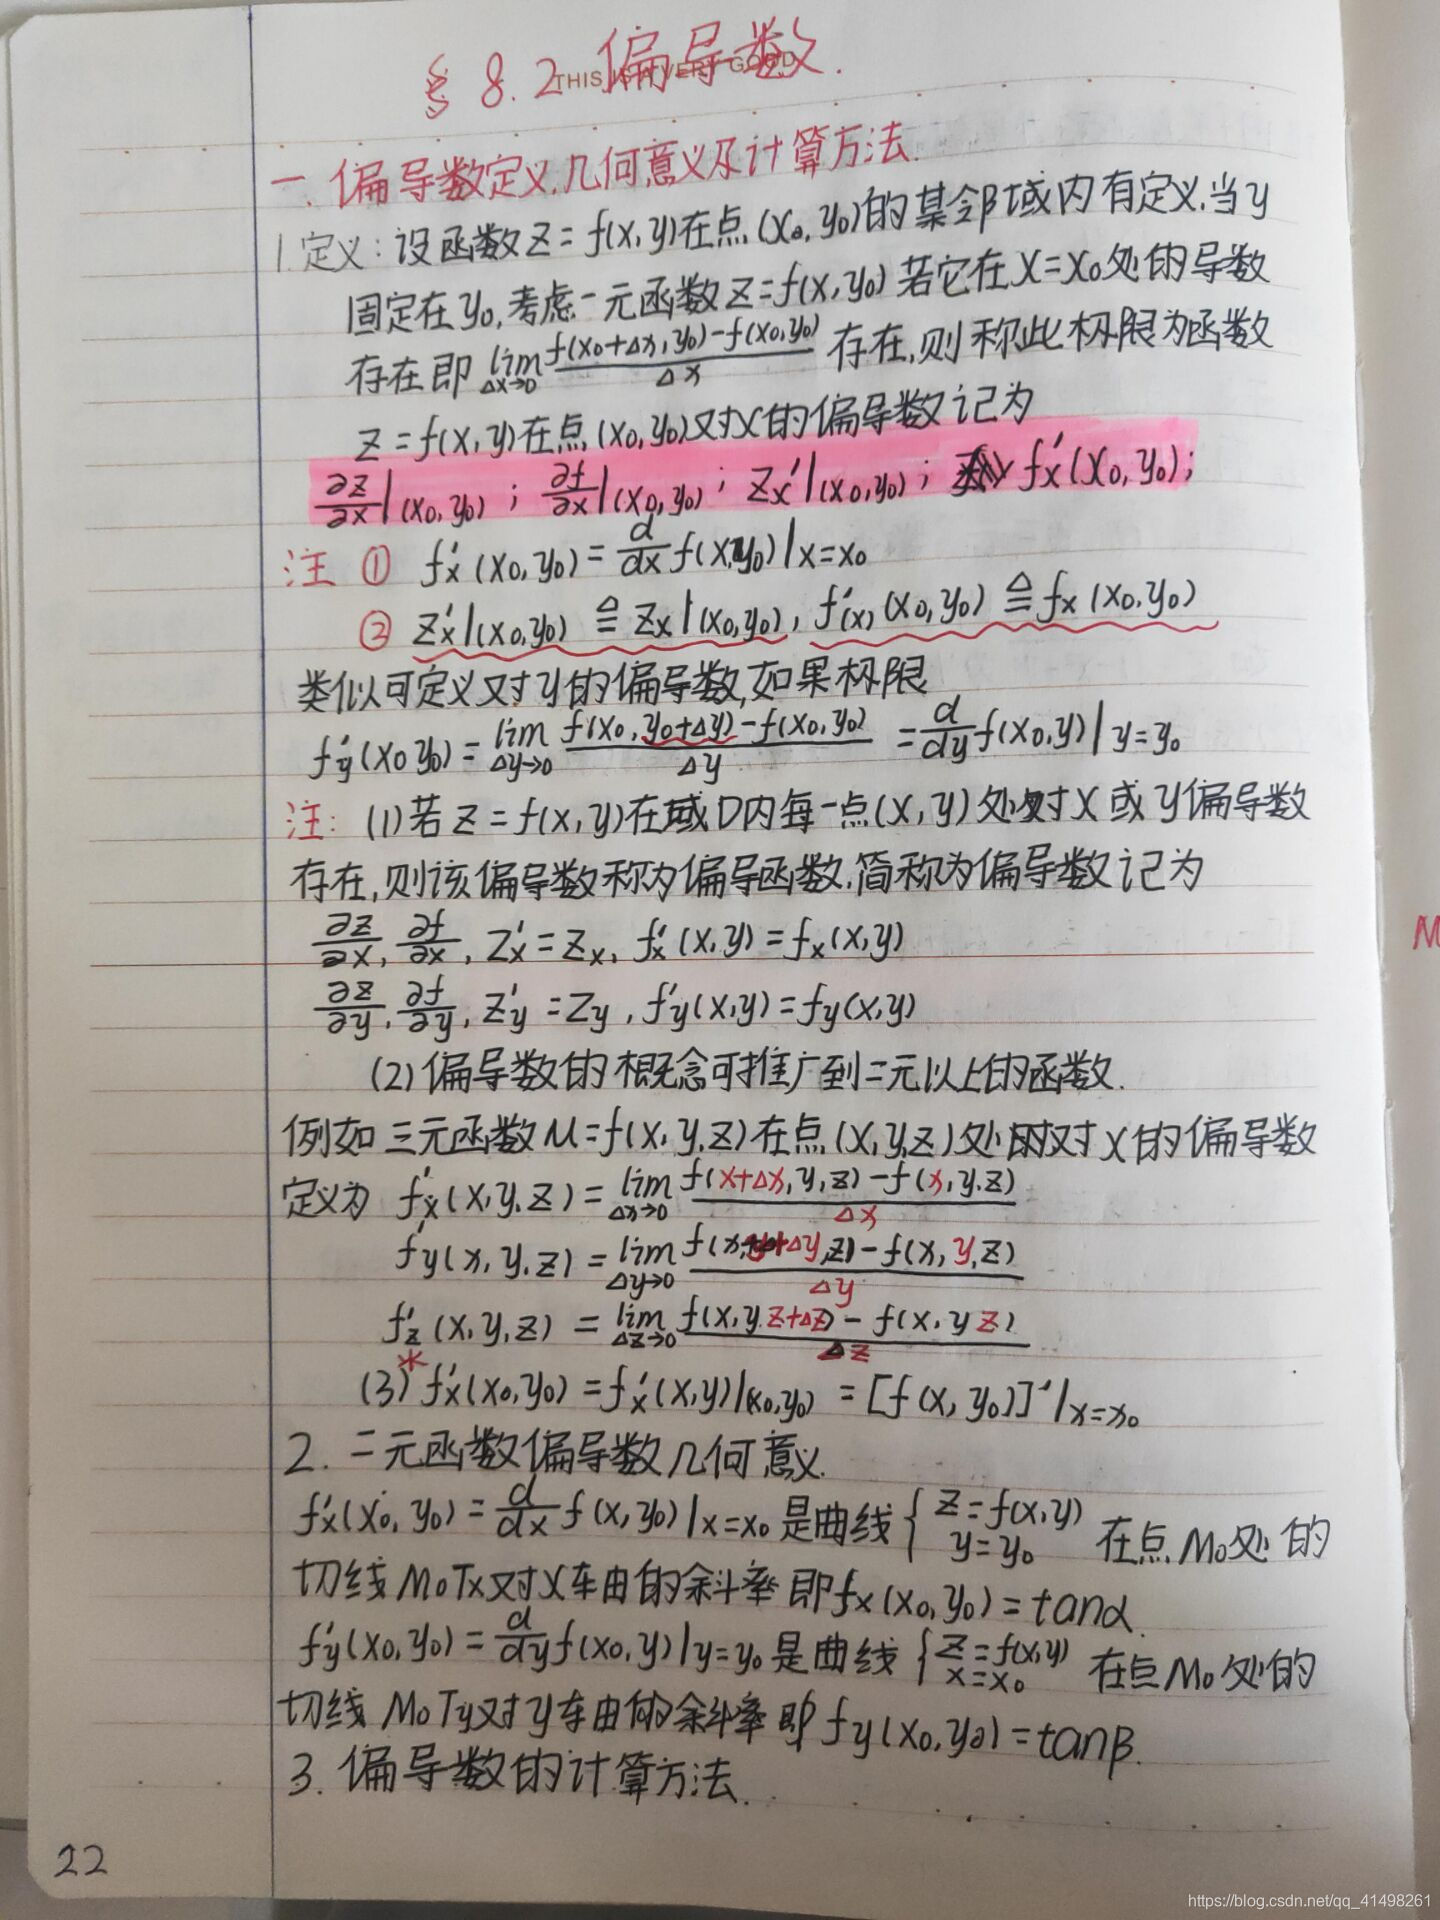 § 8.2 偏导数.
THIS IS A VERY GOOD
一. 偏导数定义,几何意义及计算方法.
1.定义: 设函数Z=f(x,y)在点(x₀,y₀)的某邻域内有定义.当y
固定在y₀,考虑一元函数Z=f(x,y₀)若它在X=X₀处的导数
存在即 lim Δx→0 (f(x₀+Δx,y₀)-f(x₀,y₀))/Δx 存在,则称此极限为函数
Z=f(x,y)在点(x₀,y₀)对X的偏导数记为
∂z/∂x|(x₀,y₀) ; ∂f/∂x|(x₀,y₀) ; Zx'|(x₀,y₀) ; fx'(x₀,y₀);
注 ① fx'(x₀,y₀)= d/dx f(x,y₀)|x=x₀
② Zx'|(x₀,y₀) ≜ Zx|(x₀,y₀), f'(x)(x₀,y₀) ≜ fx(x₀,y₀)
类似可定义对y的偏导数,如果极限
fy'(x₀ y₀)= lim Δy→0 (f(x₀,y₀+Δy)-f(x₀,y₀))/Δy = d/dy f(x₀,y)|y=y₀
注: (1)若Z=f(x,y)在域D内每一点(x,y)处对X或y偏导数
存在,则该偏导数称为偏导函数,简称为偏导数记为
∂z/∂x, ∂f/∂x, Zx'=Zx, fx'(x,y)=fx(x,y)
∂z/∂y, ∂f/∂y, Z'y=Zy, f'y(x,y)=fy(x,y)
(2)偏导数的概念可推广到二元以上的函数.
例如三元函数u=f(x,y,z)在点(x,y,z)处对x的偏导数
定义为 fx'(x,y,z)= lim Δx→0 (f(x+Δx,y,z)-f(x,y,z))/Δx
f'y(x,y,z)= lim Δy→0 (f(x,y+Δy,z)-f(x,y,z))/Δy
f'z(x,y,z)= lim Δz→0 (f(x,y z+Δz)-f(x,y z))/Δz
(3)* fx'(x₀,y₀)=fx'(x,y)|(x₀,y₀) =[f(x,y₀)]'|x=x₀
2. 二元函数偏导数几何意义.
fx'(x₀,y₀)= d/dx f(x,y₀)|x=x₀是曲线{z=f(x,y) y=y₀ 在点M₀处的
切线M₀Tx对X车由的余斗率即fx(x₀,y₀)=tanα.
f'y(x₀,y₀)= d/dy f(x₀,y)|y=y₀是曲线{z=f(x,y) x=x₀ 在点M₀处的
切线M₀Ty对y车由的余斗率即fy(x₀,y₀)=tanβ.
3. 偏导数的计算方法.
22
M
https://blog.csdn.net/qq_41498261